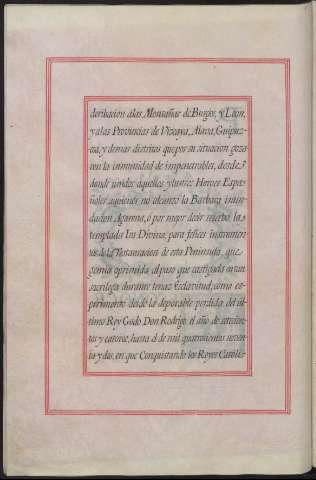 derivacion a las Montañas de Burgos, y Leon,
y a las Provincias de Vizcaya, Alava, Guipuz-
coa, y demas distritos que por su situacion goza-
ron la inmunidad de impenetrables, desde
donde unidos aquellos ylustres Heroes Espa-
ñoles aquienes no alcanzó la Barbara inun-
dacion Agarena, ó por mejor decir reservó la
templada Ira Divina, para felices instrumen-
tos de la Restauracion de esta Peninsula, que
gemia oprimida al paso que castigada en tan
sacrilega durante tenaz Esclavitud, como es-
perimentó desde la deplorable perdida del úl-
timo Rey Godo Don Rodrigo el año de setecien-
tos y catorce, hasta el de mil quatrocientos noven-
ta y dos, en que Conquistando los Reyes Catoli-